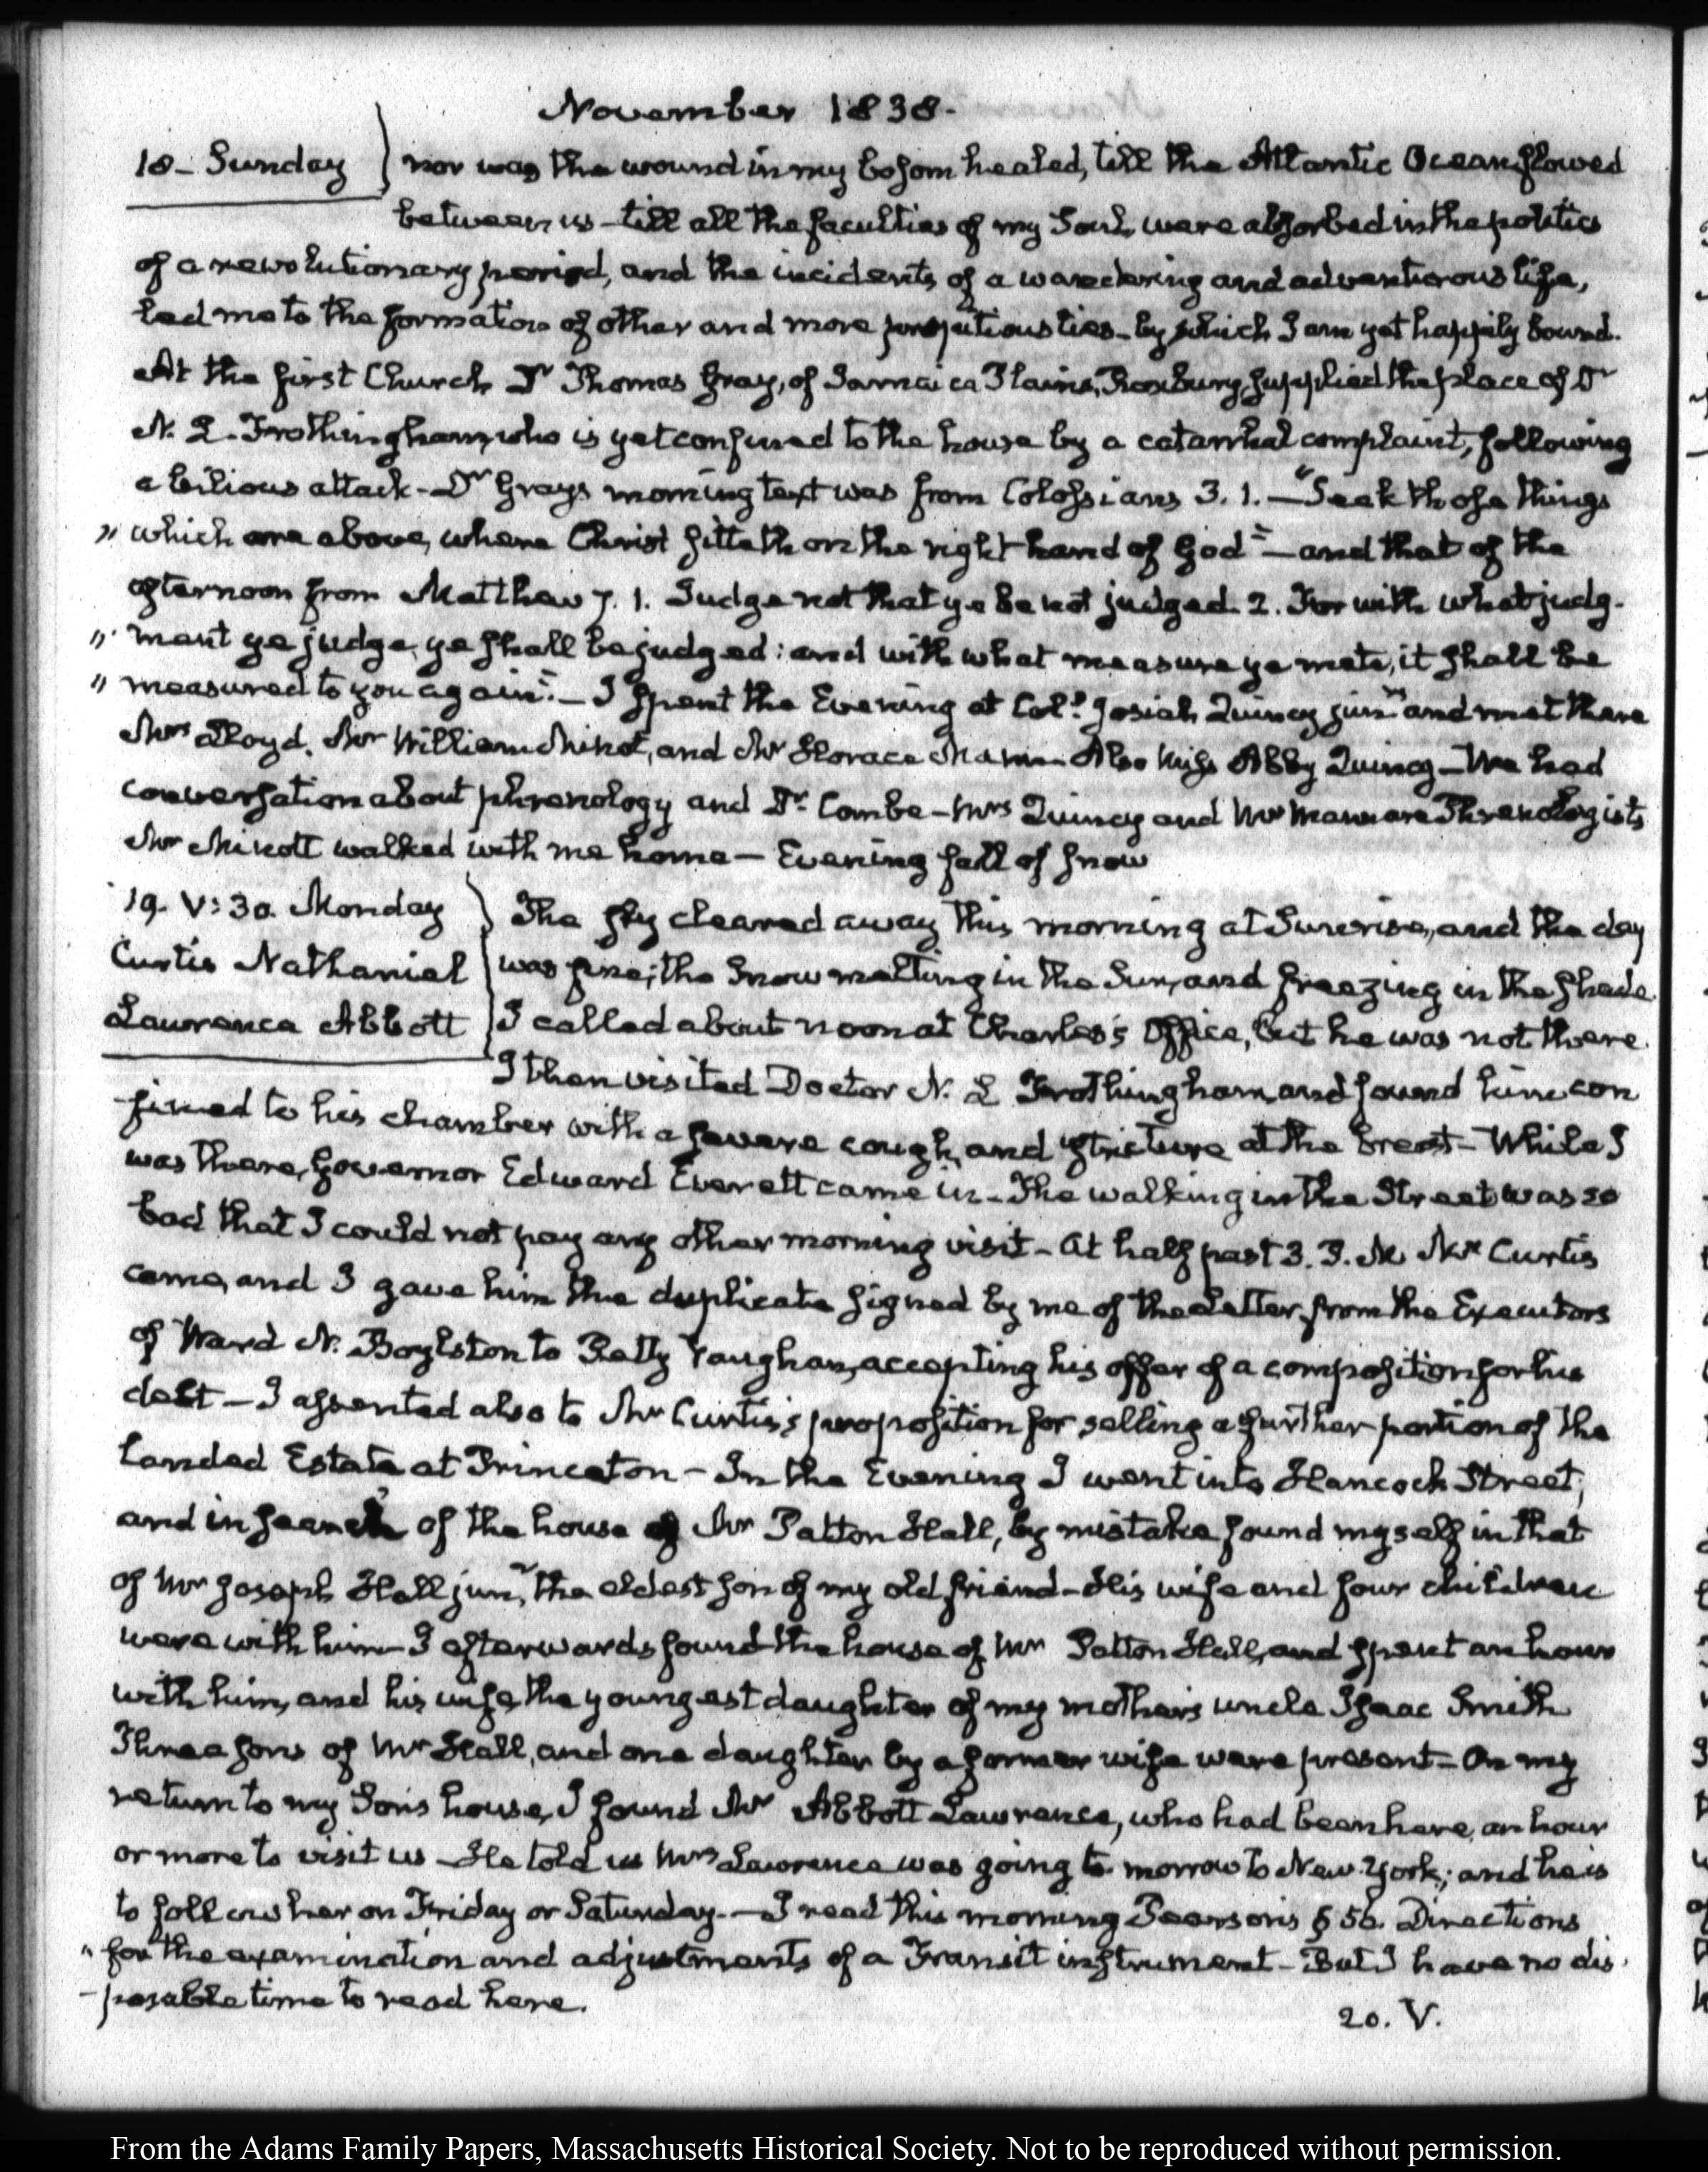 November 1838.
18. Sunday
nor was the wound in my bosom healed, till the Atlantic Ocean flowed
between us - till all the faculties of my Soul, were absorbed in the politics
of a revolutionary period, and the incidents of a wandering and adventurous life,
led me to the formation of other and more propitious ties - by which I am yet happily bound.
At the first Church Dr Thomas Gray, of Jamaica Plains, Roxbury, supplied the place of Dr
N. L. Frothingham, who is yet confined to the house by a catarrhal complaint, following
a bilious attack - Dr Grays morning text was from Colossians 3. 1. — "Seek those things
" which are above, where Christ sitteth on the right hand of God" — and that of the
afternoon from Matthew 7. 1. Judge not that ye be not judged. 2. For with what judg-
" ment ye judge, ye shall be judged: and with what measure ye mete, it shall be
" measured to you again." — I spent the Evening at Col. Josiah Quincy junr and met there
Mrs Lloyd, Mr William Minot, and Mr Horace Mann. Also Miss Abby Quincy - We had
conversation about phrenology and Dr. Combe - Mrs Quincy and Mr Mann are Phrenologists
Mr Minott walked with me home — Evening fall of snow
19. V: 30. Monday
Curtis Nathaniel
Lawrence Abbott
The sky cleared away this morning at Sunrise, and the day
was fine; the Snow melting in the Sun, and freezing in the shade.
I called about noon at Charles's Office, but he was not there.
I then visited Doctor N. L Frothingham, and found him con
fined to his chamber with a severe cough, and stricture at the breast - While I
was there, Governor Edward Everett came in - The walking in the Street was so
bad that I could not pay any other morning visit - At half past 3. P. M Mr Curtis
came, and I gave him the duplicate signed by me of the Letter from the Executors
of Ward N. Boylston to Petty Vaughan, accepting his offer of a composition for his
debt — I assented also to Mr Curtis's proposition for selling a further portion of the
landed Estate at Princeton - In the Evening I went into Hancock Street,
and in search of the house of Mr Patton Hall, by mistake found myself in that
of Mr Joseph Hall junr, the eldest son of my old friend - His wife and four children
were with him - I afterwards found the house of Mr Patton Hall, and spent an hour
with him, and his wife, the youngest daughter of my mother's uncle Isaac Smith
Three sons of Mr Hall, and one daughter by a former wife were present - On my
return to my Son's house, I found Mr Abbott Lawrence, who had been here, an hour
or more to visit us - He told us Mrs Lawrence was going to morrow to New-York; and he is
to follow her on Friday or Saturday. — I read this morning Pearson's § 56. Directions
" for the examination and adjustments of a Transit instrument - But I have no dis-
-posable time to read here.
20. V.
From the Adams Family Papers, Massachusetts Historical Society. Not to be reproduced without permission.